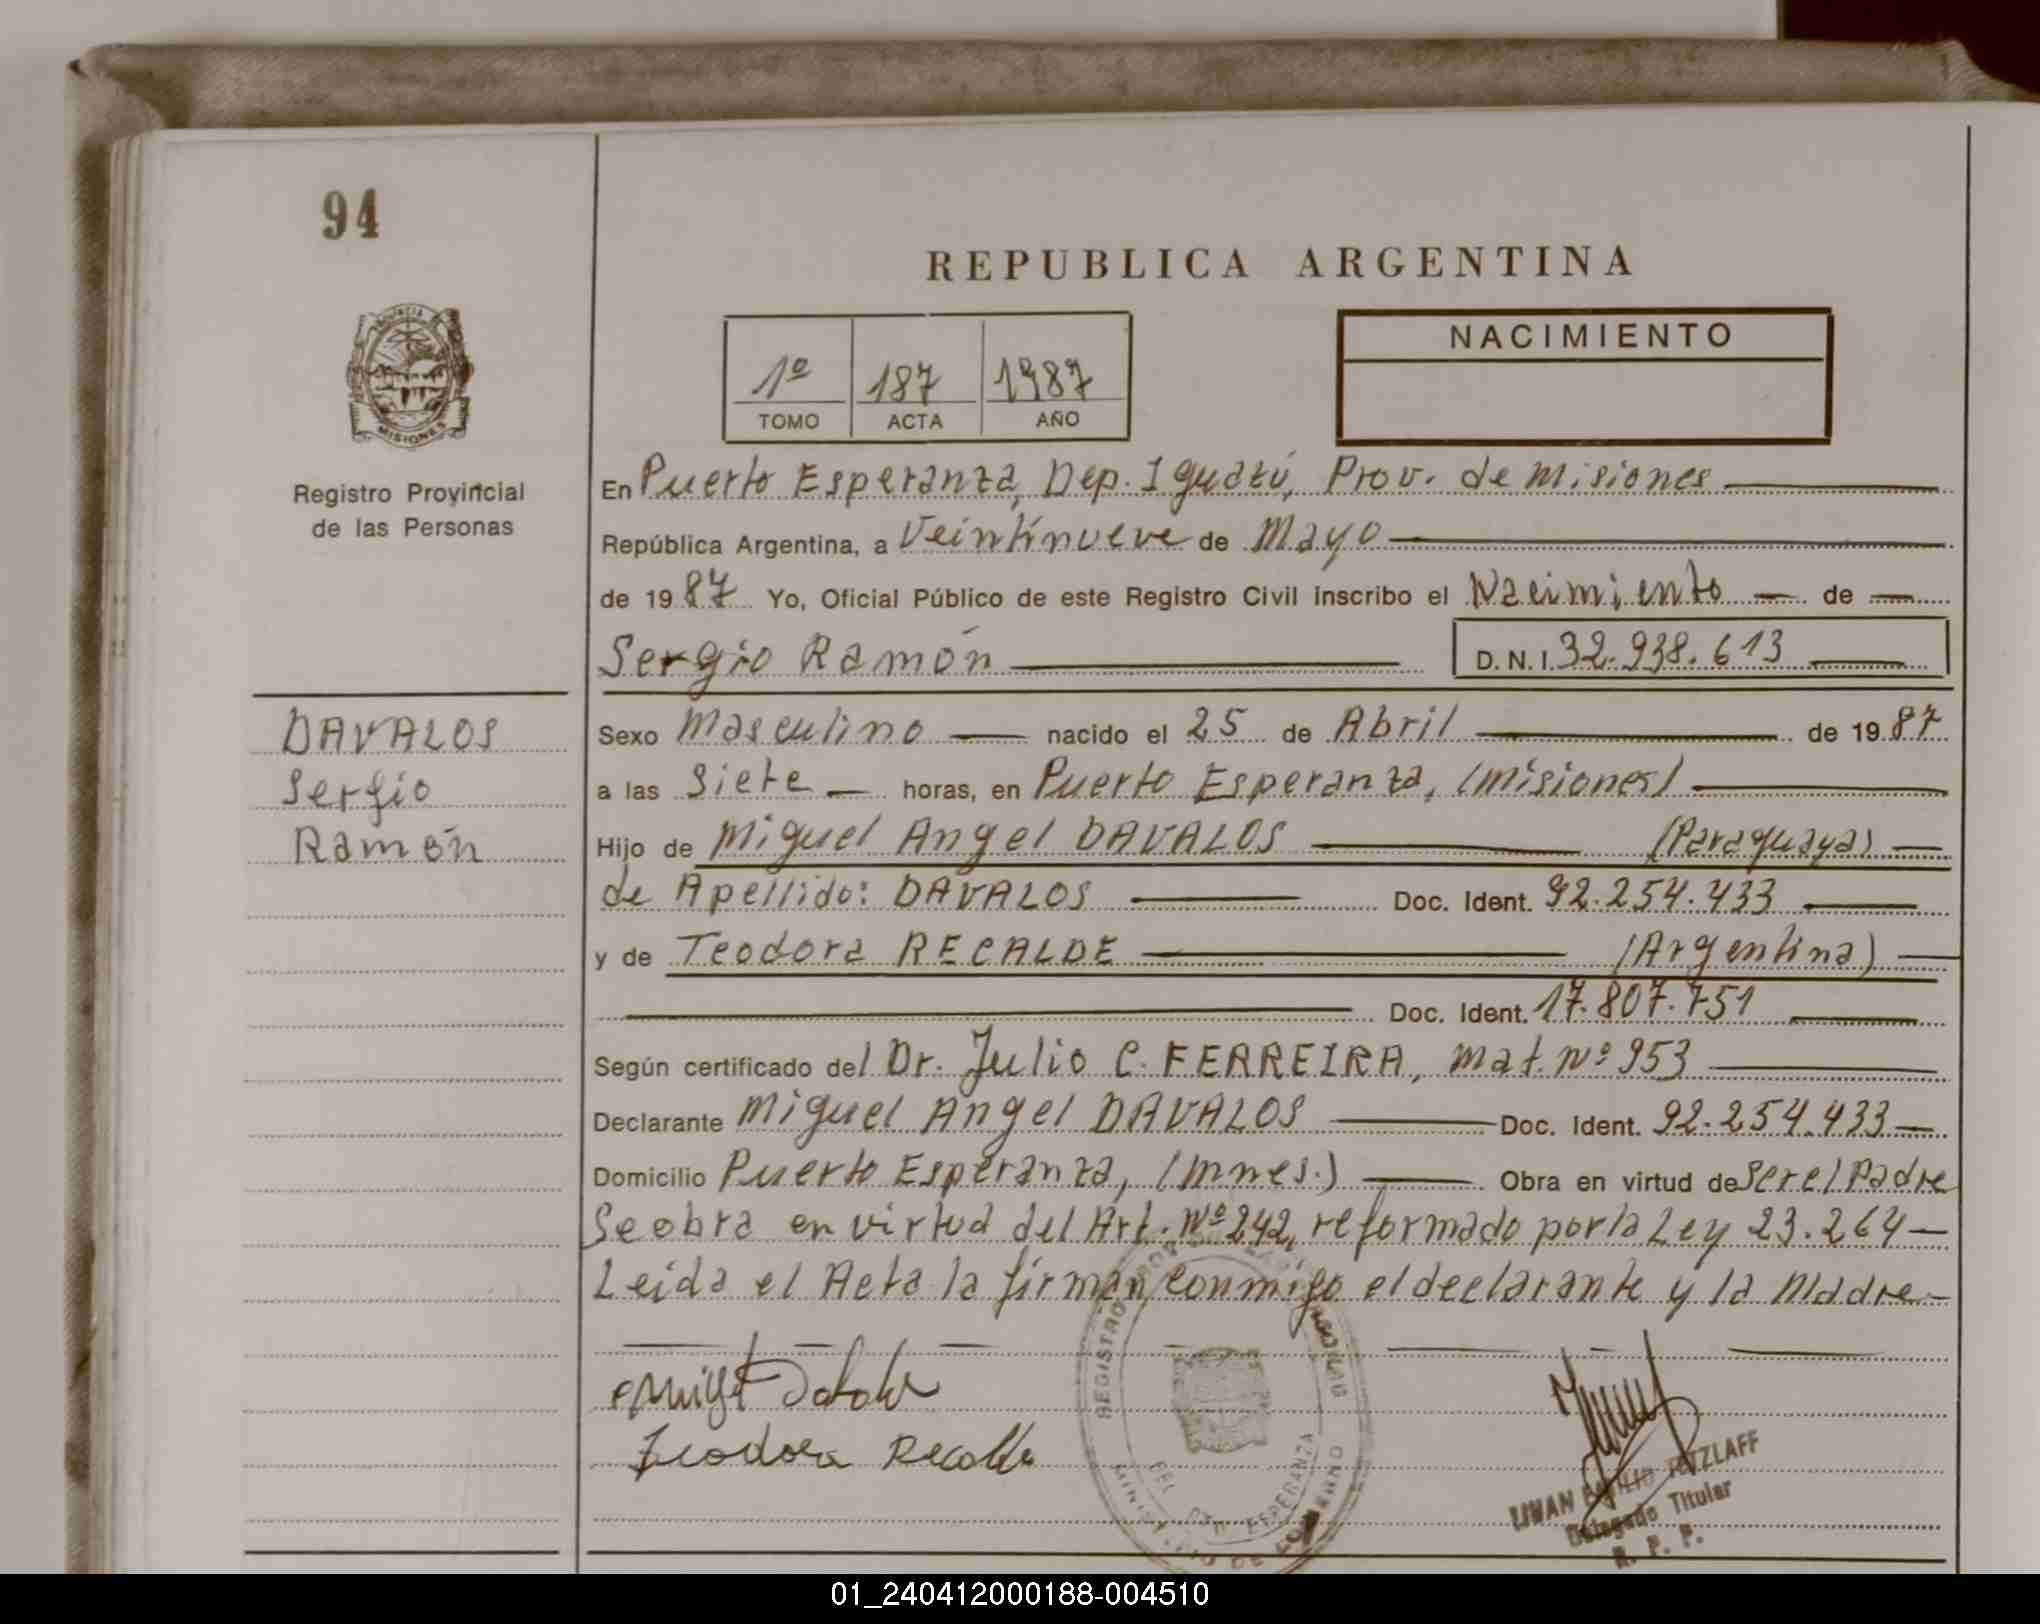 94
REPUBLICA ARGENTINA
MISIONES
Registro Provincial
de las Personas
1º 187 1987
TOMO ACTA AÑO
NACIMIENTO
En Puerto Esperanza, Dep. Iguazú, Prov. de Misiones
República Argentina, a Veintinueve de Mayo
de 1987 Yo, Oficial Público de este Registro Civil inscribo el Nacimiento de
Sergio Ramón D.N.I. 32.938.613
DAVALOS
Sergio
Ramón
Sexo Masculino nacido el 25 de Abril de 1987
a las Siete horas, en Puerto Esperanza, (Misiones)
Hijo de Miguel Angel DAVALOS (Paraguaya)
de Apellido: DAVALOS Doc. Ident. 92.254.433
y de Teodora RECALDE (Argentina)
Doc. Ident. 17.807.751
Según certificado del Dr. Julio C. FERREIRA, Mat. Nº 953
Declarante Miguel Angel DAVALOS Doc. Ident. 92.254.433
Domicilio Puerto Esperanza, (Mnes.) Obra en virtud de Ser el Padre
Se obra en virtud del Art. Nº 242, reformado por la Ley 23.264
Leida el Acta la firman conmigo el declarante y la Madre
Teodora Recalde
REGISTRO
ESPERANZA
Delegado Titular
R. P. P.
01_240412000188-004510